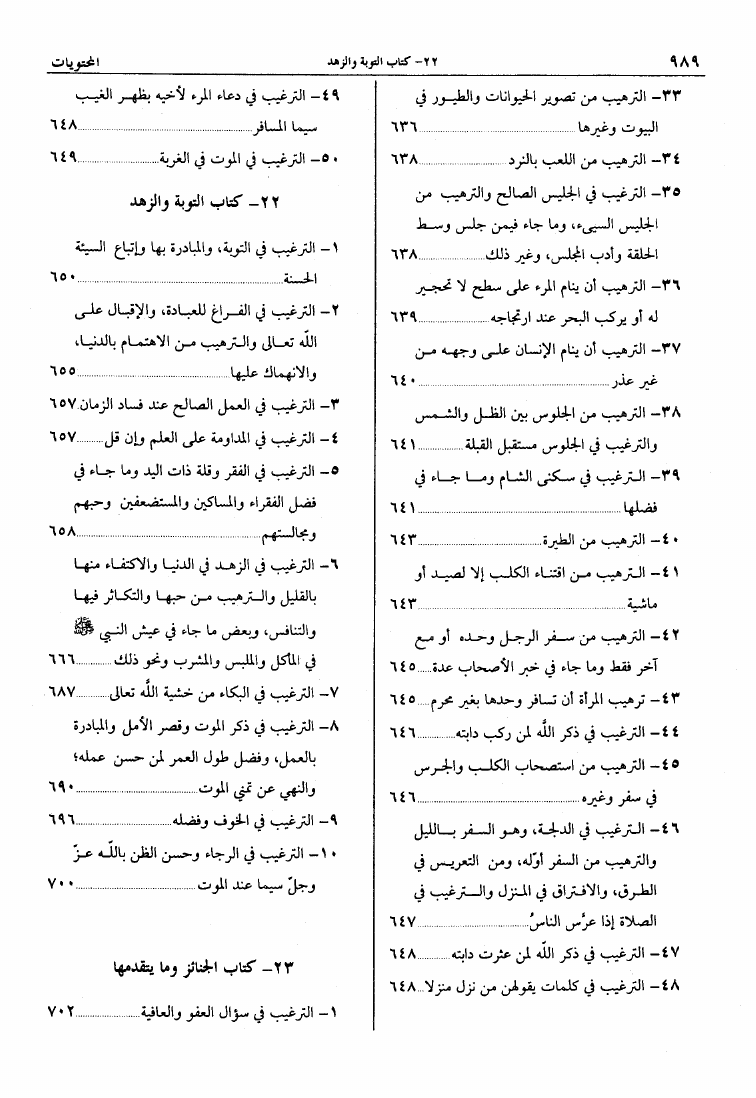 ٩٨٩
٢٢- كتاب التوبة والزهد
المحتويات
٣٣- الترهيب من تصوير الحيوانات والطيور في
البيوت وغيرها ٦٣٦
٣٤- الترهيب من اللعب بالنرد ٦٣٨
٣٥- الترغيب في الجليس الصالح والترهيب من
الجليس السيىء، وما جاء فيمن جلس وسط
الحلقة وأدب المجلس، وغير ذلك ٦٣٨
٣٦- الترهيب أن ينام المرء على سطح لا تحجير
له أو يركب البحر عند ارتجاجه ٦٣٩
٣٧- الترهيب أن ينام الإنسان على وجهه من
غير عذر ٦٤٠
٣٨- الترهيب من الجلوس بين الظل والشمس
والترغيب في الجلوس مستقبل القبلة ٦٤١
٣٩- الترغيب في سكنى الشام وما جاء في
فضلها ٦٤١
٤٠- الترهيب من الطيرة ٦٤٣
٤١- الترهيب من اقتناء الكلب إلا لصيد أو
ماشية ٦٤٣
٤٢- الترهيب من سفر الرجل وحده أو مع
آخر فقط وما جاء في خبر الأصحاب عدة ٦٤٥
٤٣- ترهيب المرأة أن تسافر وحدها بغير محرم ٦٤٥
٤٤- الترغيب في ذكر الله لمن ركب دابته ٦٤٦
٤٥- الترهيب من استصحاب الكلب والجرس
في سفر وغيره ٦٤٦
٤٦- الترغيب في الدلجة، وهو السفر بالليل
والترهيب من السفر أوّله، ومن التعريس في
الطرق، والافتراق في المنزل والترغيب في
الصلاة إذا عرَّس الناسُ ٦٤٧
٤٧- الترغيب في ذكر الله لمن عثرت دابته ٦٤٨
٤٨- الترغيب في كلمات يقولهن من نزل منزلا ٦٤٨
٤٩- الترغيب في دعاء المرء لأخيه بظهر الغيب
سيما المسافر ٦٤٨
٥٠- الترغيب في الموت في الغربة ٦٤٩
٢٢- كتاب التوبة والزهد
١- الترغيب في التوبة، والمبادرة بها وإتباع السيئة
الحسنة ٦٥٠
٢- الترغيب في الفراغ للعبادة، والإقبال على
الله تعالى والترهيب من الاهتمام بالدنيا،
والانهماك عليها ٦٥٥
٣- الترغيب في العمل الصالح عند فساد الزمان ٦٥٧
٤- الترغيب في المداومة على العلم وإن قل ٦٥٧
٥- الترغيب في الفقر وقلة ذات اليد وما جاء في
فضل الفقراء والمساكين والمستضعفين وحبهم
ومجالستهم ٦٥٨
٦- الترغيب في الزهد في الدنيا والاكتفاء منها
بالقليل والترهيب من حبها والتكاثر فيها
والتنافس، وبعض ما جاء في عيش النبي ﷺ
في المأكل والملبس والمشرب ونحو ذلك ٦٦٦
٧- الترغيب في البكاء من خشية الله تعالى ٦٨٧
٨- الترغيب في ذكر الموت وقصر الأمل والمبادرة
بالعمل، وفضل طول العمر لمن حسن عمله؛
والنهي عن تمني الموت ٦٩٠
٩- الترغيب في الخوف وفضله ٦٩٦
١٠- الترغيب في الرجاء وحسن الظن بالله عزّ
وجلّ سيما عند الموت ٧٠٠
٢٣- كتاب الجنائز وما يتقدمها
١- الترغيب في سؤال العفو والعافية ٧٠٢